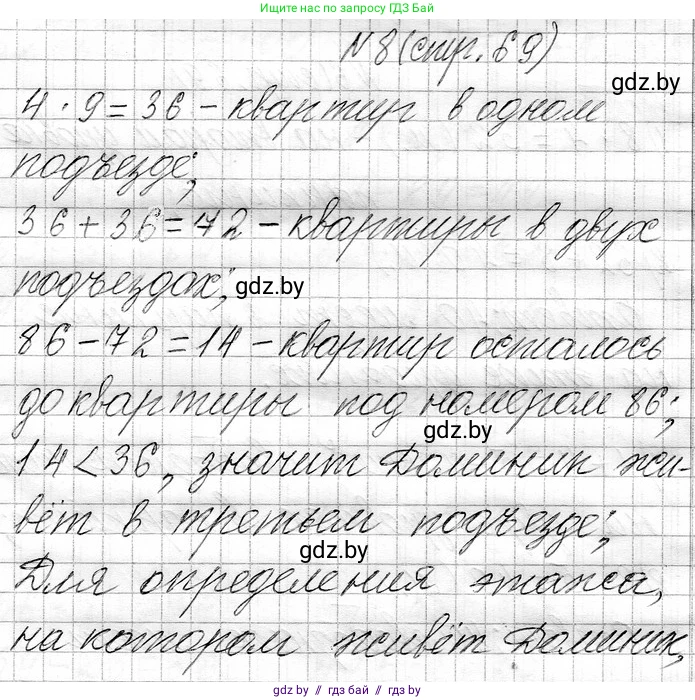 Ищите нас в поиске по ГДЗ Бай
№ 8 (стр. 69)
gdz.by
4 · 9 = 36 – квартир в одном
подъезде;
36 + 36 = 72 – квартиры в двух
подъездах;
gdz.by
86 – 72 = 14 – квартир осталось
до квартиры под номером 86;
gdz.by
14 < 36, значит Доминик жи-
вёт в третьем подъезде;
gdz.by
Для определения этажа,
на котором живёт Доминик,
gdz.by // gdz.by // gdz.by